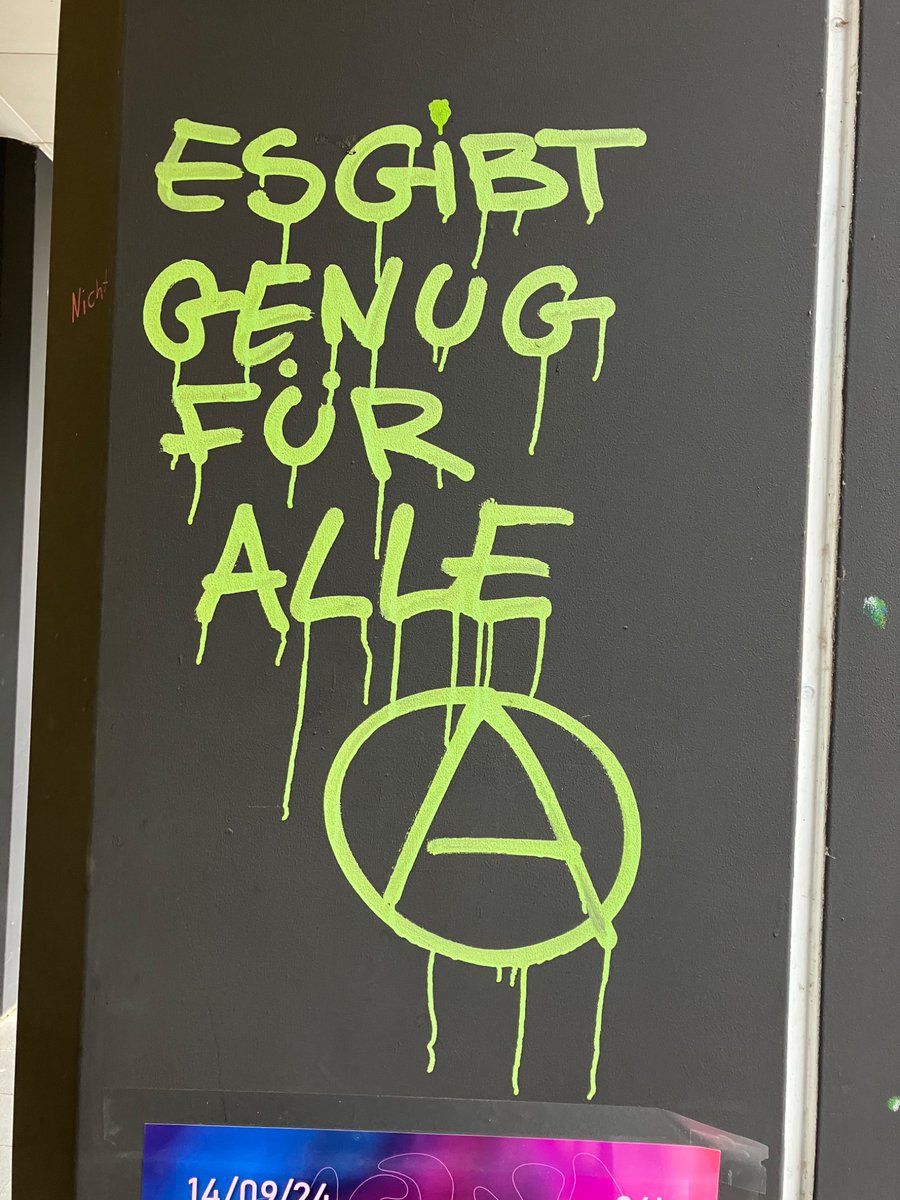 ES GiBT
GENUG
Nicht
FÜR
ALLE
A
14/09/24